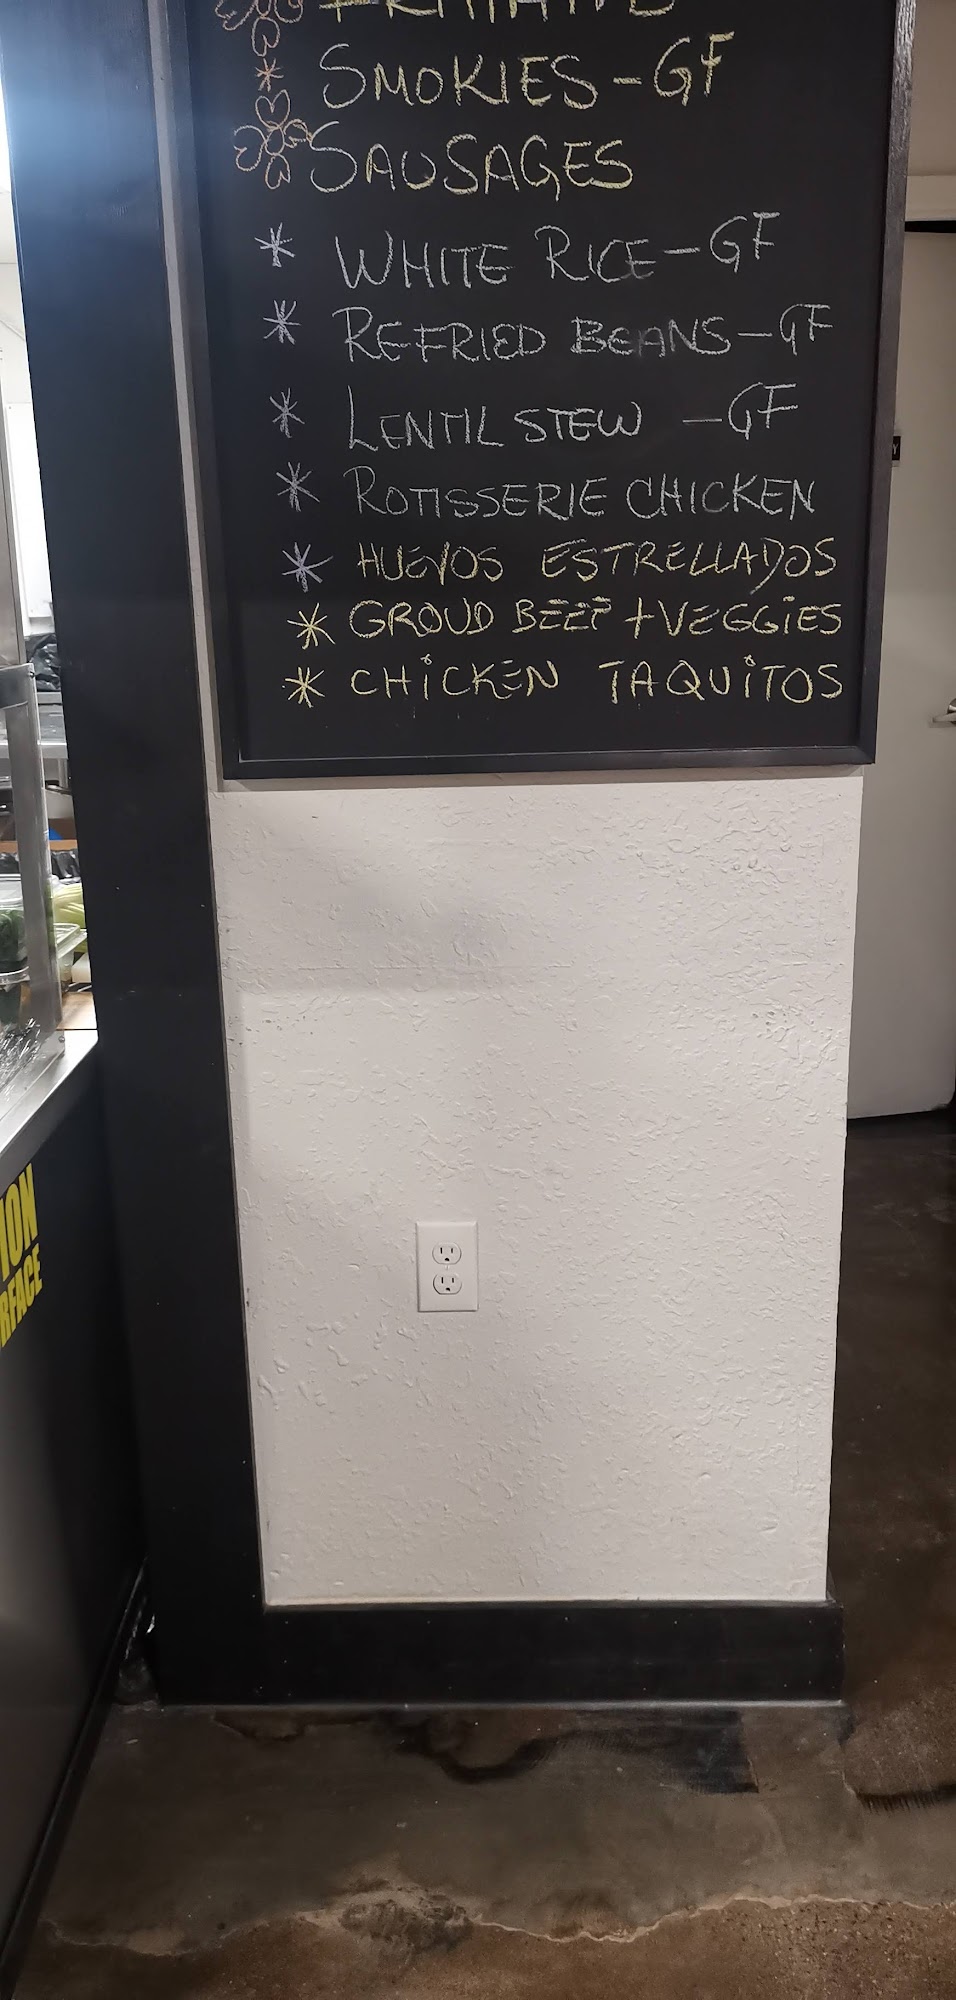 SMOKIES-GF
SAUSAGES
* WHITE RICE-GF
* REFRIED BEANS-GF
* LENTIL STEW -GF
* ROTISSERIE CHICKEN
* HUEVOS ESTRELLADOS
* GROUD BEEF + VEGGIES
* CHICKEN TAQUITOS
ION
RFACE